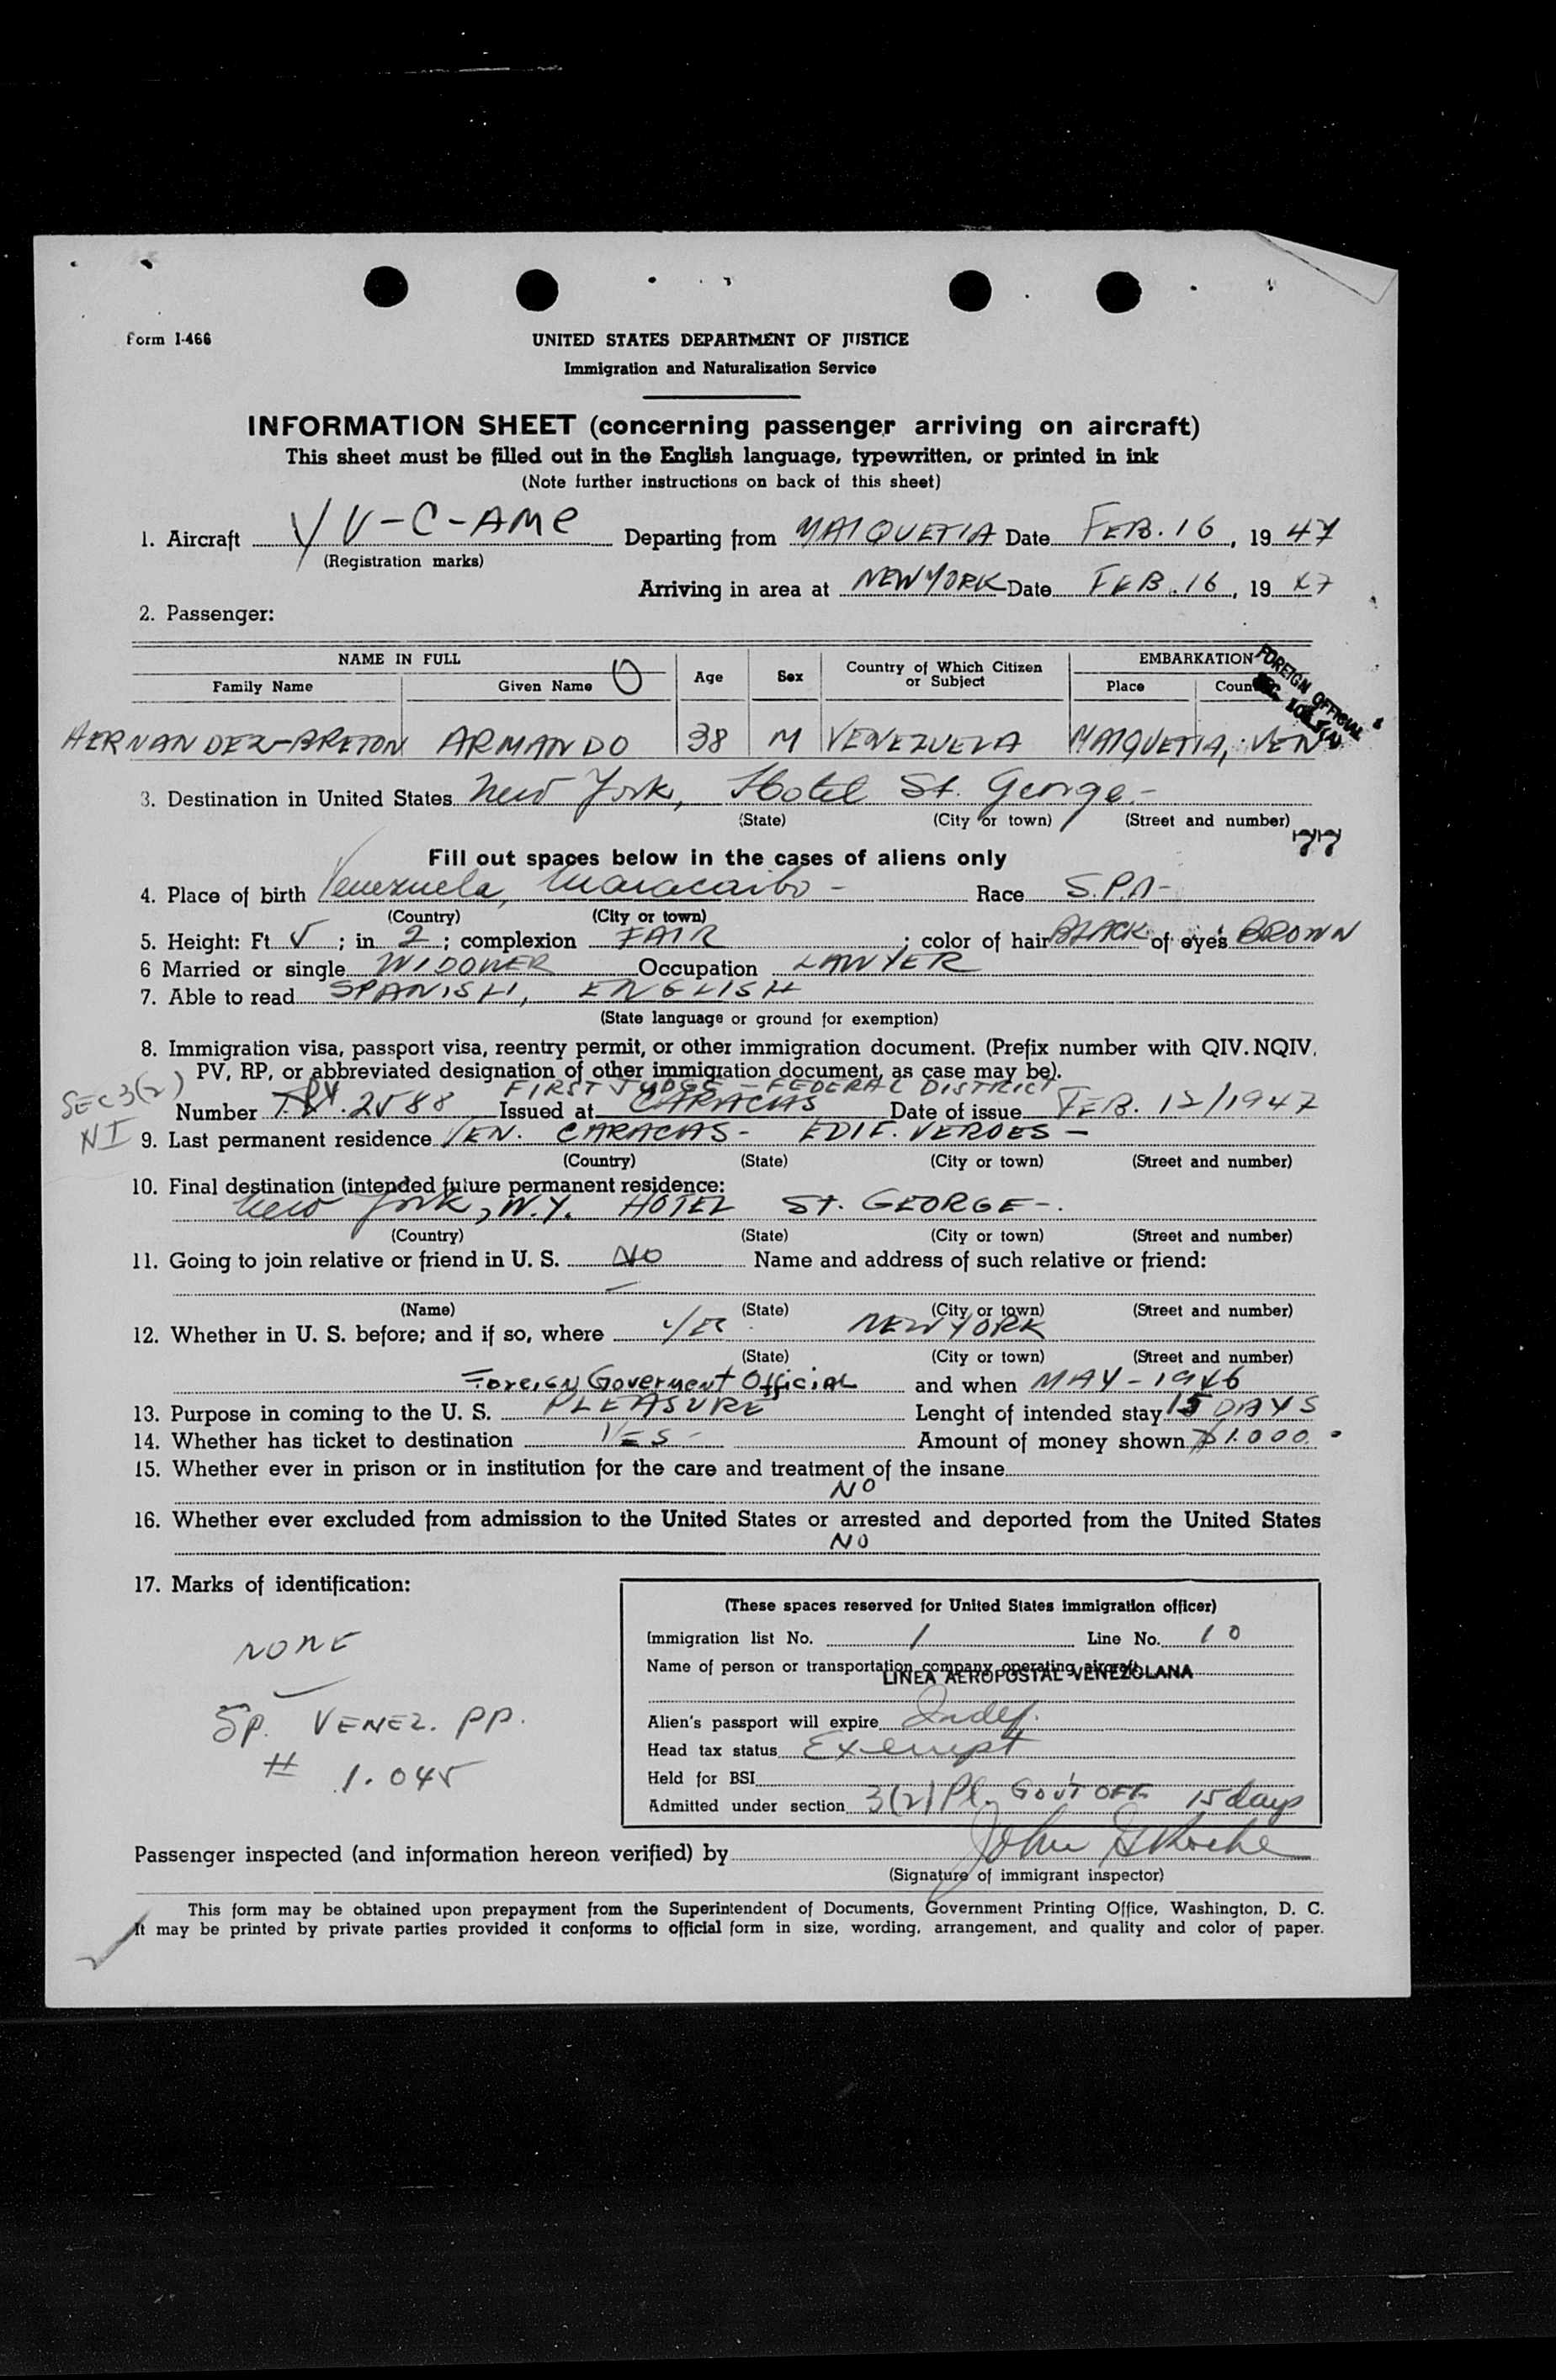 Form I-466
UNITED STATES DEPARTMENT OF JUSTICE
Immigration and Naturalization Service
INFORMATION SHEET (concerning passenger arriving on aircraft)
This sheet must be filled out in the English language, typewritten, or printed in ink
(Note further instructions on back of this sheet)
1. Aircraft YV-C-AMC Departing from MAIQUETIA Date FEB. 16, 1947
(Registration marks)
Arriving in area at NEW YORK Date FEB. 16, 1947
2. Passenger:
NAME IN FULL Age Sex Country of Which Citizen or Subject EMBARKATION
Family Name Given Name Place Coun
FOREIGN OFFICIAL
HERNANDEZ-BRETON ARMANDO 38 M VENEZUELA MAIQUETIA, VEN
3. Destination in United States New York, Hotel St. George.-
(State) (City or town) (Street and number)
77
Fill out spaces below in the cases of aliens only
4. Place of birth Venezuela, Maracaibo - Race S.P.A-
(Country) (City or town)
5. Height: Ft 5 ; in 2 ; complexion FAIR ; color of hair BLACK of eyes BROWN
6 Married or single WIDOWER Occupation LAWYER
7. Able to read SPANISH, ENGLISH
(State language or ground for exemption)
8. Immigration visa, passport visa, reentry permit, or other immigration document. (Prefix number with QIV. NQIV,
PV, RP, or abbreviated designation of other immigration document, as case may be).
SEC 3(2) FIRST JUDGE - FEDERAL DISTRICT
Number 2588 Issued at CARACAS Date of issue FEB. 12/1947
NI 9. Last permanent residence VEN. CARACAS- EDIF. VEROES -
(Country) (State) (City or town) (Street and number)
10. Final destination (intended future permanent residence:
New York, N.Y. HOTEL St. GEORGE-.
(Country) (State) (City or town) (Street and number)
11. Going to join relative or friend in U. S. NO Name and address of such relative or friend:
(Name) (State) (City or town) (Street and number)
12. Whether in U. S. before; and if so, where YES NEW YORK
(State) (City or town) (Street and number)
Foreign Goverment Official and when MAY-1946
13. Purpose in coming to the U. S. PLEASURE Lenght of intended stay 15 DAYS
14. Whether has ticket to destination YES- Amount of money shown $1.000.
15. Whether ever in prison or in institution for the care and treatment of the insane
NO
16. Whether ever excluded from admission to the United States or arrested and deported from the United States
NO
17. Marks of identification:
NONE
Sp. VENEZ. PP.
# 1.045
(These spaces reserved for United States immigration officer)
Immigration list No. 1 Line No. 10
Name of person or transportation company operating aircraft
LINEA AEROPOSTAL VENEZOLANA
Alien's passport will expire Indef.
Head tax status Exempt
Held for BSI
Admitted under section 3(2) Pl. GOV'T OFF. 15 days
Passenger inspected (and information hereon verified) by John
(Signature of immigrant inspector)
This form may be obtained upon prepayment from the Superintendent of Documents, Government Printing Office, Washington, D. C.
It may be printed by private parties provided it conforms to official form in size, wording, arrangement, and quality and color of paper.